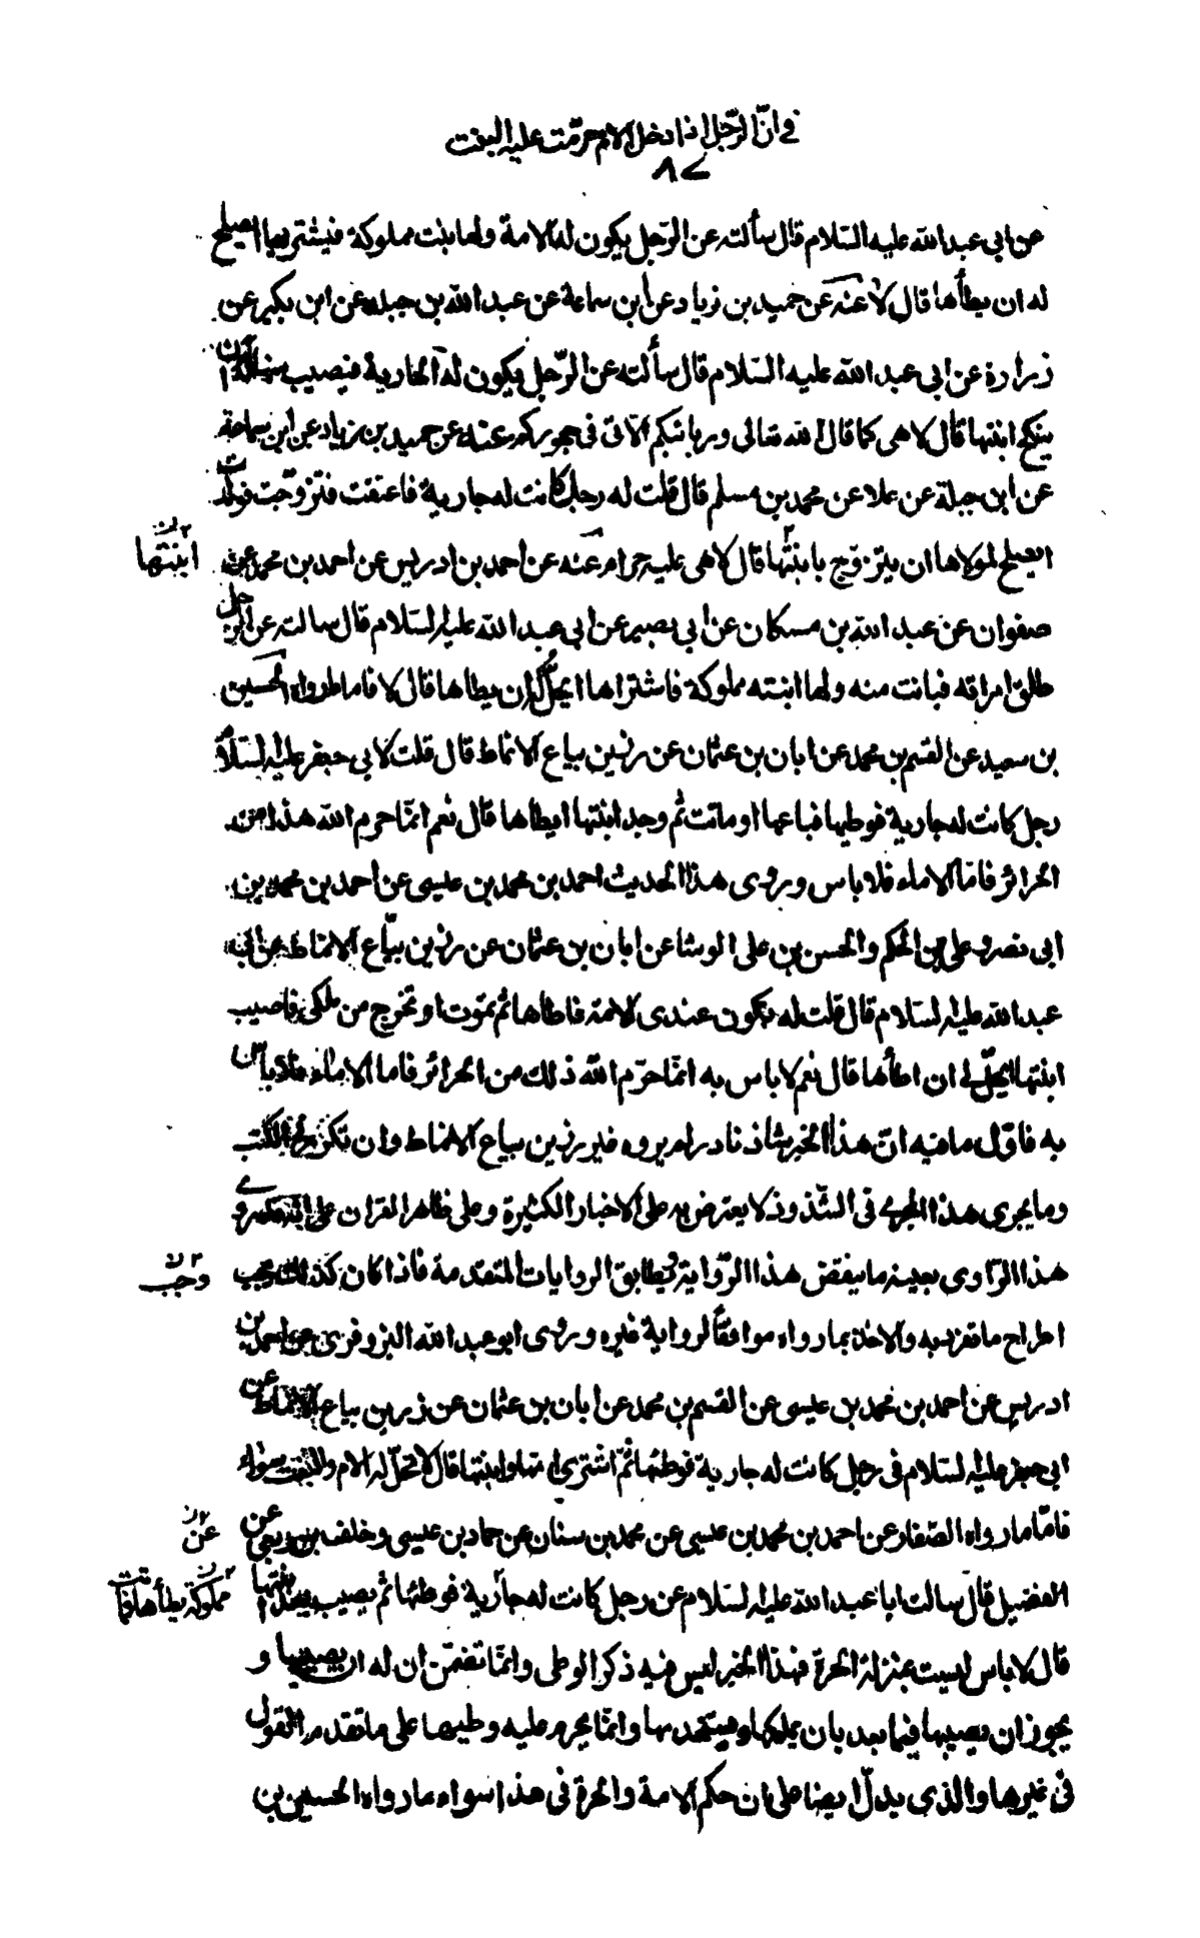 في انّ الرّجل اذا دخل بالام حرّمت عليه البنت
٨٧
عن ابى عبد الله عليه السّلام قال سألته عن الرّجل يكون له الامة ولها بنت مملوكة فيشتريها ايصلح
له ان يطأها قال لا عنه عن حميد بن زياد عن ابن سماعة عن عبد الله بن جبلة عن ابن بكير عن
زرارة عن ابى عبد الله عليه السّلام قال سألته عن الرّجل يكون له الجارية فيصيب منها اله ان
ينكح ابنتها قال لا هى كما قال الله تعالى وربائبكم الّاتى فى حجوركم عنه عن حميد بن زياد عن ابن سماعة
عن ابن جبلة عن علا عن محمد بن مسلم قال قلت له رجل كانت له جارية فاعتقت فتزوّجت فولدت
ايصلح لمولاها ان يتزوّج بابنتها قال لا هى عليه حرام عنه عن احمد بن ادريس عن احمد بن محمد عن
ابنتها
صفوان عن عبد الله بن مسكان عن ابى بصير عن ابى عبد الله عليه السّلام قال سالته عن الرّجل
طلق امراته فبانت منه ولها ابنته مملوكة فاشتراها ايحلّ له ان يطاها قال لا فاما ما رواه الحسين
بن سعيد عن القسم بن محمد عن ابان بن عثمان عن رزين بياع الانماط قال قلت لابى جعفر عليه السّلام
رجل كانت له جارية فوطيها فباعها او ماتت ثم وجد ابنتها ايطاها قال نعم انّما حرم الله هذا من
الحرائر فامّا الاماء فلا باس وروى هذا الحديث احمد بن محمد بن عيسى عن احمد بن محمد بن
ابى نصر وعلى بن الحكم والحسن بن على الوشا عن ابان بن عثمان عن رزين بيّاع الانماط عن ابى
عبد الله عليه السّلام قال قلت له يكون عندى الامة فاطاها ثم تموت او تخرج من ملكى فاصيب
ابنتها ايحلّ لى ان اطأها قال نعم لا باس به انّما حرّم الله ذلك من الحرائر فاما الاماء فلا باس
به فاوّل ما فيه انّ هذا الخبر شاذ نادر لم يروه غير رزين بياع الانماط وان تكرر فى الكتب
وما يجرى هذا المجرى فى الشّذوذ لا يعترض به على الاخبار الكثيرة وعلى ظاهر القران على انّه قد روى
هذا الرّاوى بعينه ما ينقض هذا الرّواية ويطابق الروايات المتقدمة فاذا كان كذلك وجب
وجب
اطراح ما تفرد به والاخذ بما رواه موافقا لرواية غيره وروى ابو عبد الله البزوفرى عن احمد بن
ادريس عن احمد بن محمد بن عيسى عن القسم بن محمد عن ابان بن عثمان عن رزين بياع الانماط عن
ابى جعفر عليه السّلام فى رجل كانت له جارية فوطئها ثمّ اشترى امّها وابنتها قال لا تحلّ له الام والبنت سواء
فامّا ما رواه الصّفار عن احمد بن محمد بن عيسى عن محمد بن سنان عن حماد بن عيسى وخلف بن ربعى عن
عن
الفضيل قال سالت ابا عبد الله عليه السّلام عن رجل كانت له جارية فوطئها ثم يصيب بعد ابنتها
قال لا باس ليست بمنزلة الحرة فهذا الخبر ليس فيه ذكر الوطى وانّما تضمّن ان له ان يصيبها و
يجوز ان يصيبها فيما بعد بان يملكها ويستخدمها وانّما يحرم عليه وطيها على ما تقدم القول
فى غيرها والذى يدلّ ايضا على ان حكم الامة والحرة فى هذا سواء ما رواه الحسين بن